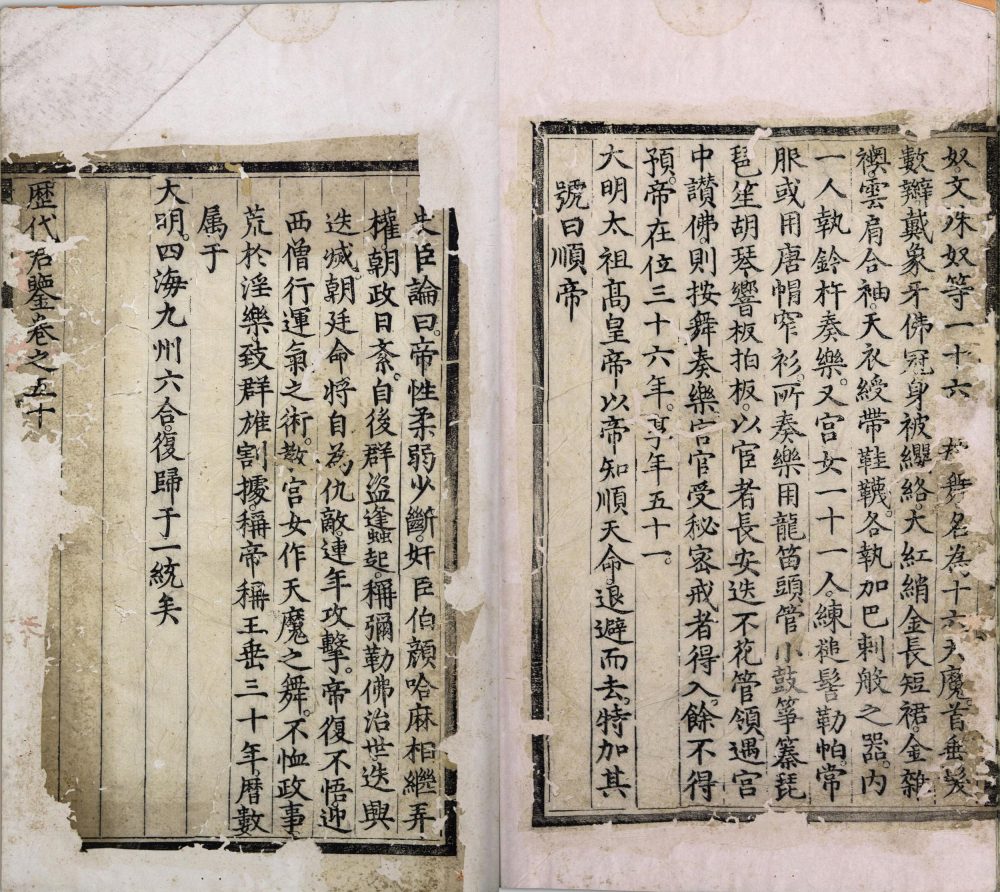 奴文殊奴等一十六 舞名為十六天魔首垂髮
數辮戴象牙佛冠身被纓絡大紅綃金長短裙金雜
襖雲肩合袖天衣綬帶鞋韈各執加巴剌般之器内
一人執鈴杵奏樂又宮女一十一人練槌髻勒帕常
服或用唐帽窄衫所奏樂用龍笛頭管小鼓箏纂琵
琶笙胡琴響板拍板以宦者長安迭不花管領遇宮
中讃佛則按舞奏樂宮官受秘密戒者得入餘不得
預帝在位三十六年享年五十一
大明太祖高皇帝以帝知順天命退避而去特加其
號曰順帝
史臣論曰帝性柔弱少斷奸臣伯顔哈麻相繼弄
權朝政日紊自後群盜逢蠭起稱彌勒佛治世迭興
迭滅朝廷命將自為仇敵連年攻擊帝復不悟迎
西僧行運氣之術教宮女作天魔之舞不恤政事
荒於淫樂致群雄割據稱帝稱王垂三十年曆數
属于
大明四海九州六合復歸于一統矣
歷代君鑒卷之五十